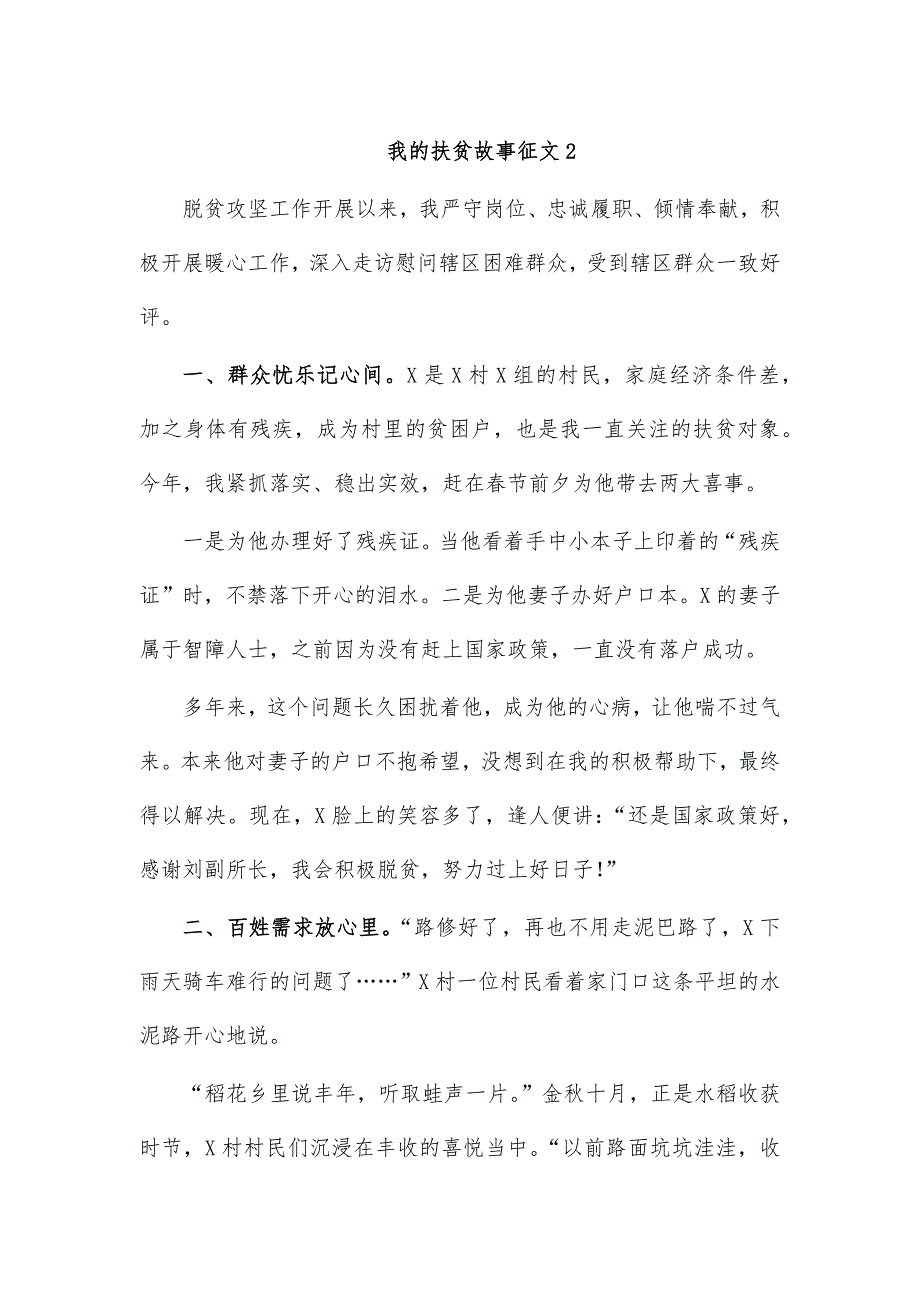 我的扶贫故事征文2
脱贫攻坚工作开展以来，我严守岗位、忠诚履职、倾情奉献，积
极开展暖心工作，深入走访慰问辖区困难群众，受到辖区群众一致好
评。
一、群众忧乐记心间。X 是 X 村 X 组的村民，家庭经济条件差，
加之身体有残疾，成为村里的贫困户，也是我一直关注的扶贫对象。
今年，我紧抓落实、稳出实效，赶在春节前夕为他带去两大喜事。
一是为他办理好了残疾证。当他看着手中小本子上印着的“残疾
证”时，不禁落下开心的泪水。二是为他妻子办好户口本。X 的妻子
属于智障人士，之前因为没有赶上国家政策，一直没有落户成功。
多年来，这个问题长久困扰着他，成为他的心病，让他喘不过气
来。本来他对妻子的户口不抱希望，没想到在我的积极帮助下，最终
得以解决。现在，X 脸上的笑容多了，逢人便讲：“还是国家政策好，
感谢刘副所长，我会积极脱贫，努力过上好日子！”
二、百姓需求放心里。“路修好了，再也不用走泥巴路了，X 下
雨天骑车难行的问题了……”X 村一位村民看着家门口这条平坦的水
泥路开心地说。
“稻花乡里说丰年，听取蛙声一片。”金秋十月，正是水稻收获
时节，X 村村民们沉浸在丰收的喜悦当中。“以前路面坑坑洼洼，收